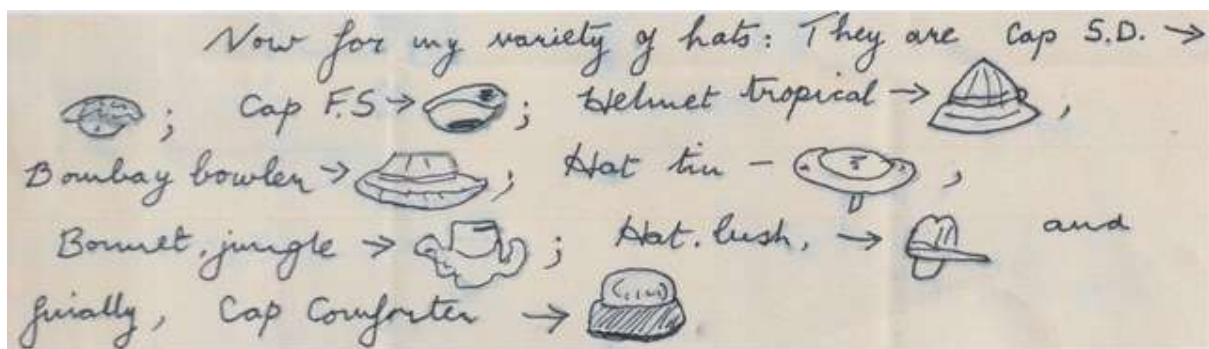 Now for my variety of hats: They are Cap S.D. →
; Cap F.S → ; Helmet tropical → ,
Bombay bowler → ; Hat tin - ,
Bonnet, jungle → ; Hat. bush, → and
finally, Cap Comforter →